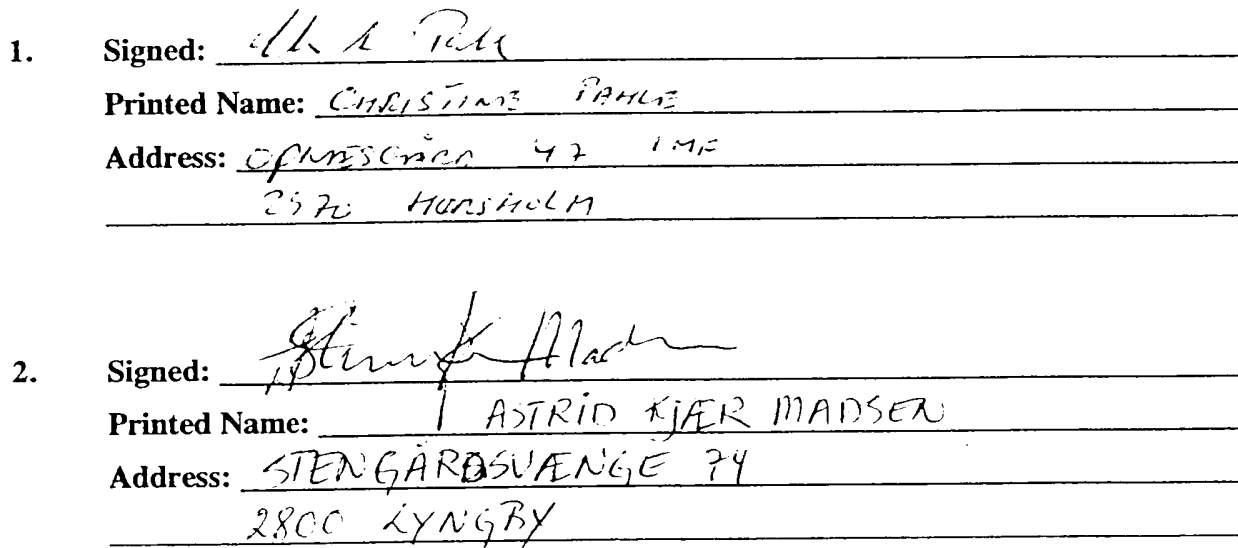 1. Signed:
Printed Name: CHRISTINE PAHLE
Address: 47
2970 HORSHOLM
2. Signed:
Printed Name: ASTRID KJÆR MADSEN
Address: STENGÅRDSVÆNGE 74
2800 LYNGBY